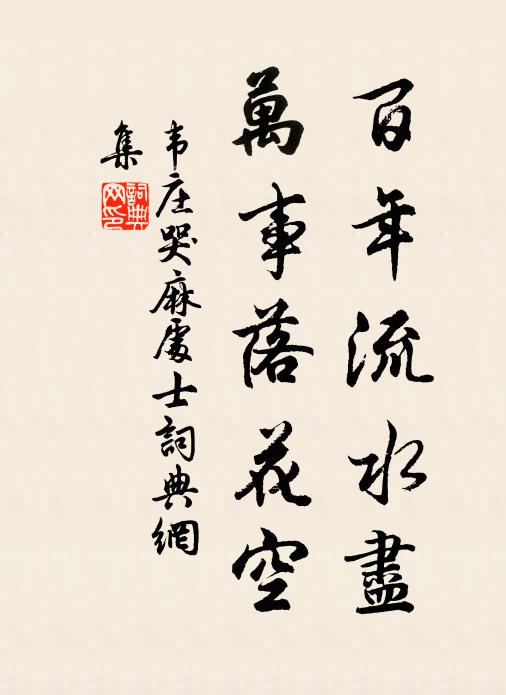 百年流水盡
萬事落花空
韦庄哭麻處士詞典網
集
詞典網印